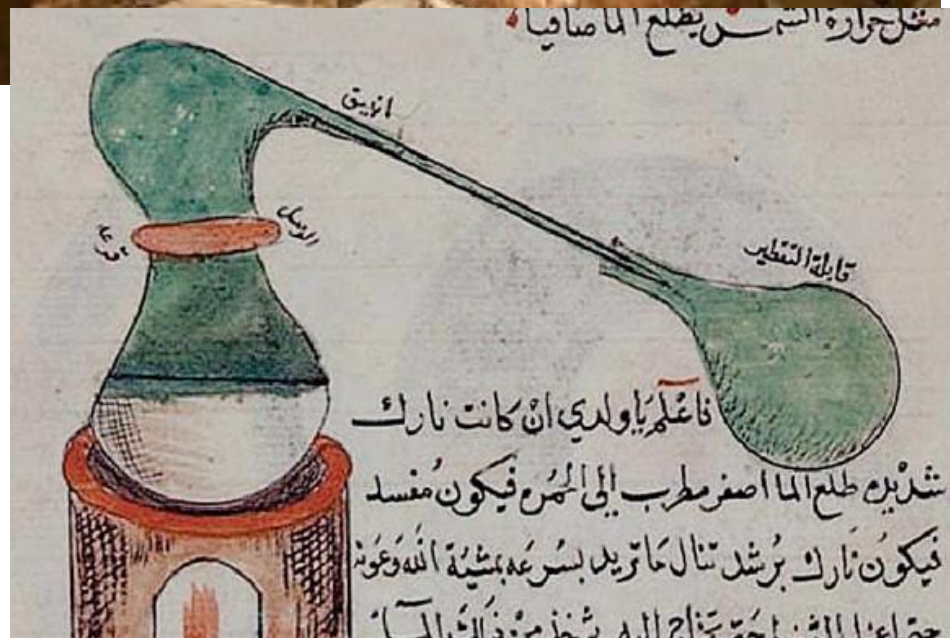 مثل حرارة الشمس يطلع الما صافيا
انبيق
الوصل
قرعة
قابلة التقطير
فاعلم يا ولدي ان كانت نارك
شديده طلع الما اصفر مطرب الى الحمره فيكون مفسد
فيكون نارك برشد تنال ما تريد بسرعه بمشية الله وعونه